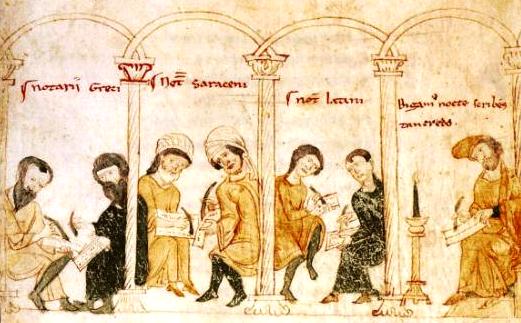 notarii Greci
Not̄ Saraceni
not̄ latini
Bigam⁹ nocte scribēs
tancredo.